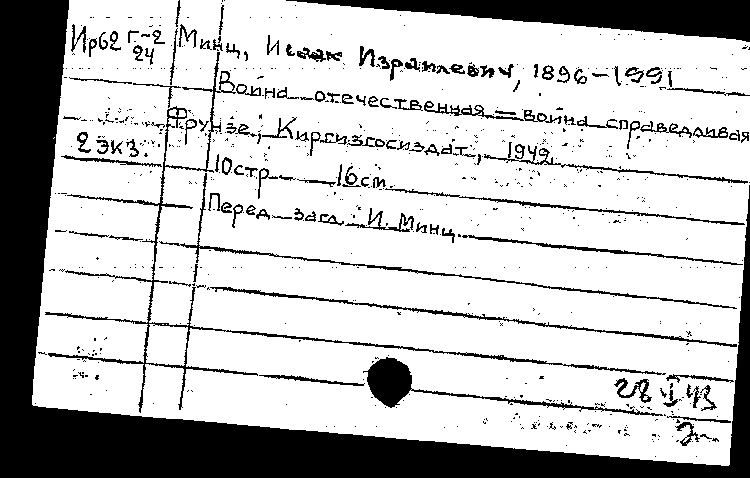 Ир62 Г-2 Минц, Исаак Израилевич, 1896-1991
24
Война отечественная - война справедливая
Фрунзе, Киргизгосиздат, 1942.
2 экз.
10стр 16см
Перед загл. И. Минц.
28 I 43